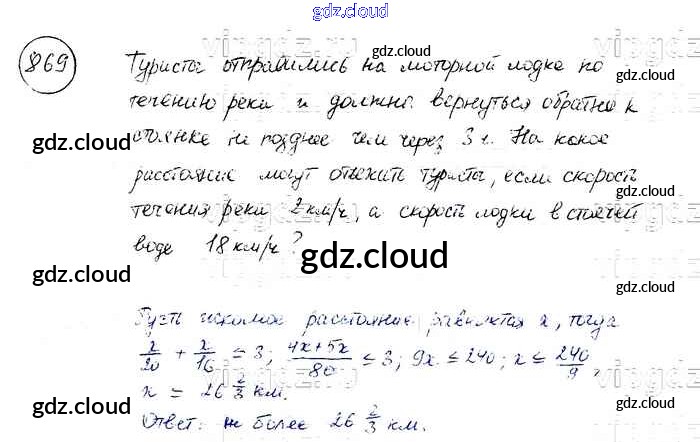 gdz.cloud
869
Туристы отправились на моторной лодке по
течению реки и должны вернуться обратно к
стоянке не позднее чем через 3 ч. На какое
расстояние могут отъехать туристы, если скорость
течения реки 2 км/ч, а скорость лодки в стоячей
воде 18 км/ч?
Пусть искомое расстояние равняется x, тогда
x/20 + x/16 ≤ 3; (4x+5x)/80 ≤ 3; 9x ≤ 240; x ≤ 240/9,
x = 26 2/3 км.
Ответ: не более 26 2/3 км.
gdz.cloud
gdz.cloud
gdz.cloud
gdz.cloud
gdz.cloud
gdz.cloud
gdz.cloud
gdz.cloud
gdz.cloud
gdz.cloud
gdz.cloud